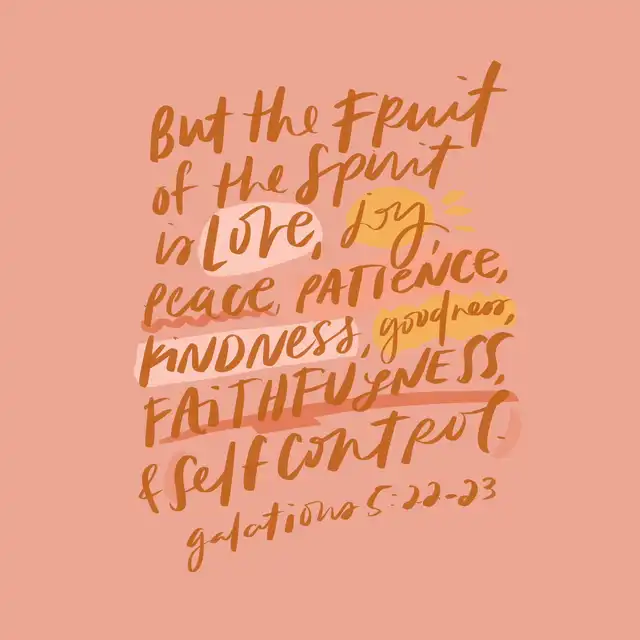 But the Fruit
of the Spirit
is Love, joy,
peace, PATIENCE,
KINDNESS, goodness,
FAITHFULNESS,
& Self CONTROL.
galations 5:22-23